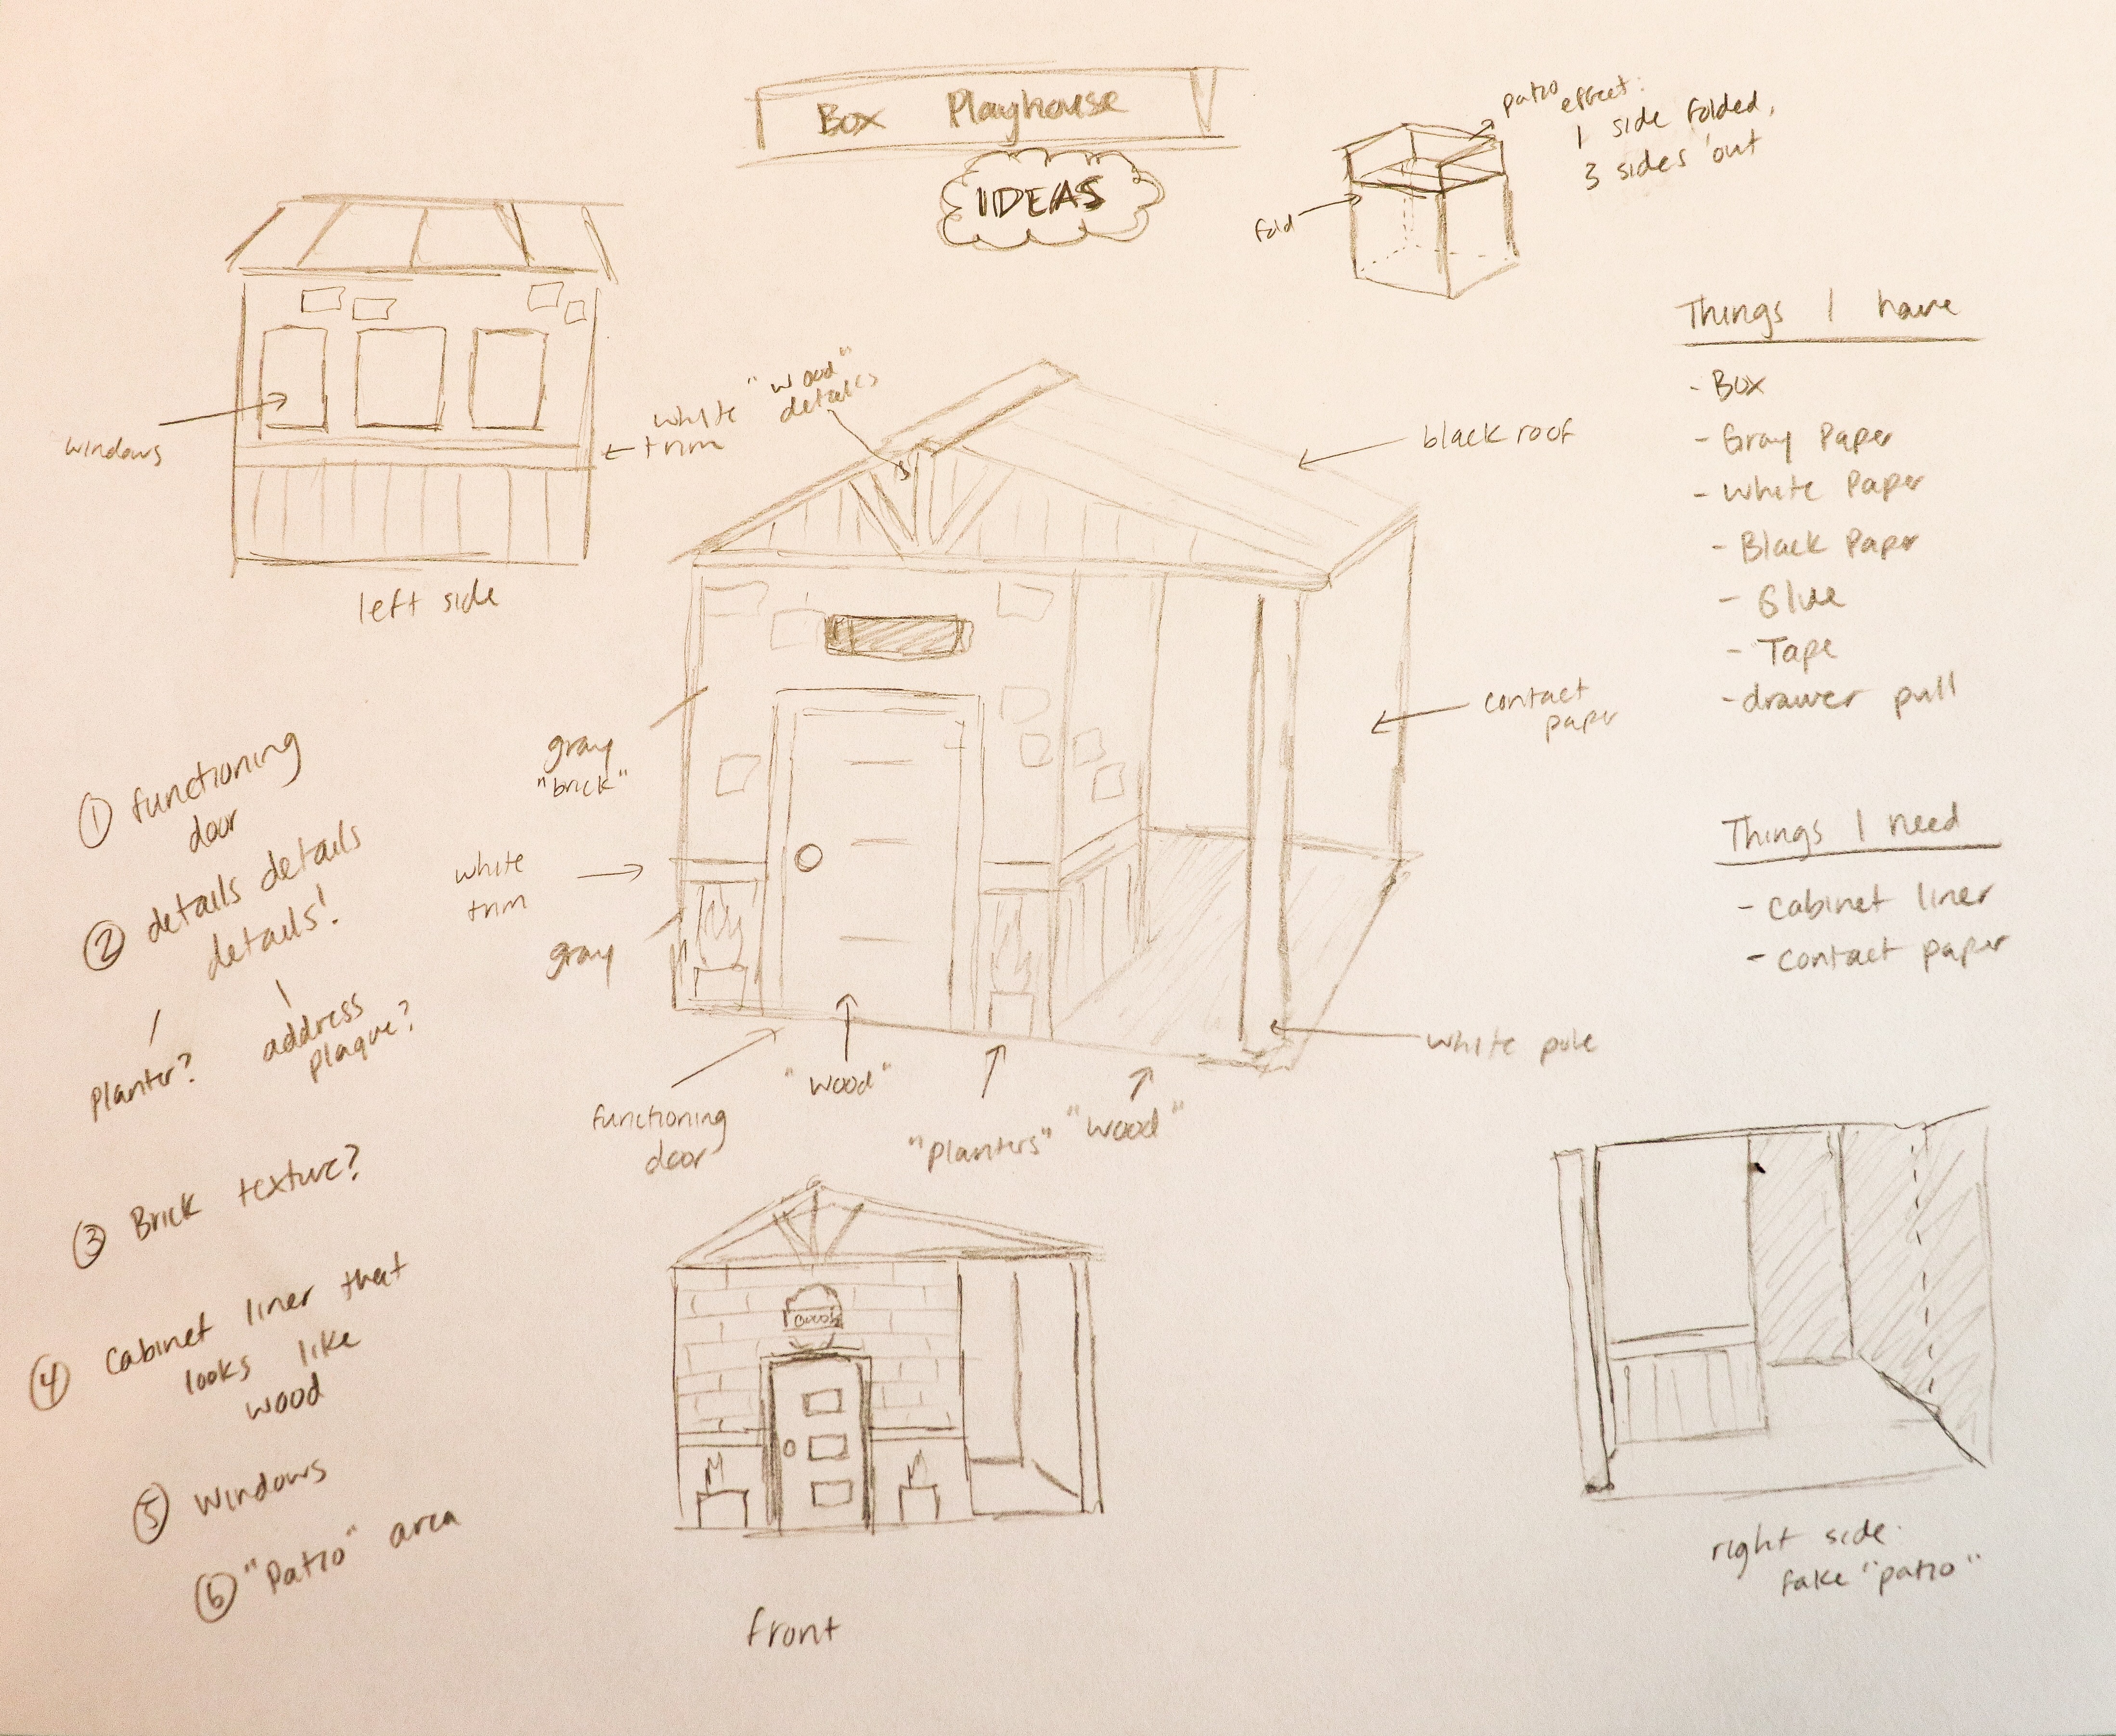 Box Playhouse
IDEAS
patio effect:
1 side folded,
3 sides out
fold
windows
white
trim
left side
"wood"
details
black roof
contact
paper
gray
"brick"
white
trim
gray
functioning
door
"wood"
"Planters"
"wood"
white pole
Things I have
- Box
- Gray Paper
- White Paper
- Black Paper
- Glue
- Tape
- drawer pull
Things I need
- cabinet liner
- contact paper
① functioning
door
② details details
details!
planter?
address
plaque?
③ Brick texture?
④ Cabinet liner that
looks like
wood
⑤ Windows
⑥ "Patio" area
front
right side.
fake "patio"